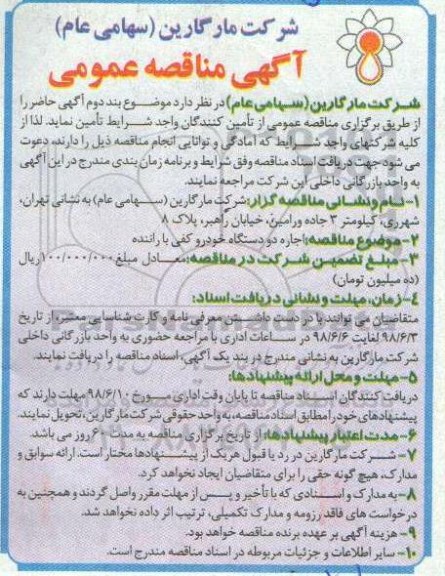 شرکت مارگارین (سهامی عام)
آگهی مناقصه عمومی
شرکت مارگارین (سهامی عام) در نظر دارد موضوع بند دوم آگهی حاضر را
از طریق برگزاری مناقصه عمومی از تأمین کنندگان واجد شرایط تأمین نماید. لذا از
کلیه شرکتهای واجد شرایط که آمادگی و توانایی انجام مناقصه ذیل را دارند، دعوت
می شود جهت دریافت اسناد مناقصه وفق شرایط و برنامه زمان بندی مندرج در این آگهی
به واحد بازرگانی داخلی این شرکت مراجعه نمایند.
۱- نام و نشانی مناقصه گزار: شرکت مارگارین (سهامی عام) به نشانی تهران،
شهرری، کیلومتر ۳ جاده ورامین، خیابان راهبر، پلاک ۸
۲- موضوع مناقصه: اجاره دو دستگاه خودرو کفی با راننده
۳- مبلغ تضمین شرکت در مناقصه: معادل مبلغ ۱۰۰/۰۰۰/۰۰۰ ریال
(ده میلیون تومان)
۴- زمان، مهلت و نشانی دریافت اسناد:
متقاضیان می توانند با در دست داشتن معرفی نامه و کارت شناسایی معتبر، از تاریخ
۹۸/۶/۳ لغایت ۹۸/۶/۶ در ساعات اداری با مراجعه حضوری به واحد بازرگانی داخلی
شرکت مارگارین به نشانی مندرج در بند یک آگهی، اسناد مناقصه را دریافت نمایند.
۵- مهلت و محل ارائه پیشنهادها:
دریافت کنندگان اسناد مناقصه تا پایان وقت اداری مورخ ۹۸/۶/۱۰ مهلت دارند که
پیشنهادهای خود را مطابق اسناد مناقصه، به واحد حقوقی شرکت مارگارین، تحویل نمایند.
۶- مدت اعتبار پیشنهادها: از تاریخ برگزاری مناقصه به مدت ۶۰ روز می باشد.
۷- شرکت مارگارین در رد یا قبول هر یک از پیشنهادها مختار است. ارائه سوابق و
مدارک، هیچ گونه حقی را برای متقاضیان ایجاد نخواهد کرد.
۸- به مدارک و اسنادی که با تأخیر و پس از مهلت مقرر واصل گردند و همچنین به
درخواست های فاقد رزومه و مدارک تکمیلی، ترتیب اثر داده نخواهد شد.
۹- هزینه آگهی بر عهده برنده مناقصه خواهد بود.
۱۰- سایر اطلاعات و جزئیات مربوطه در اسناد مناقصه مندرج است.